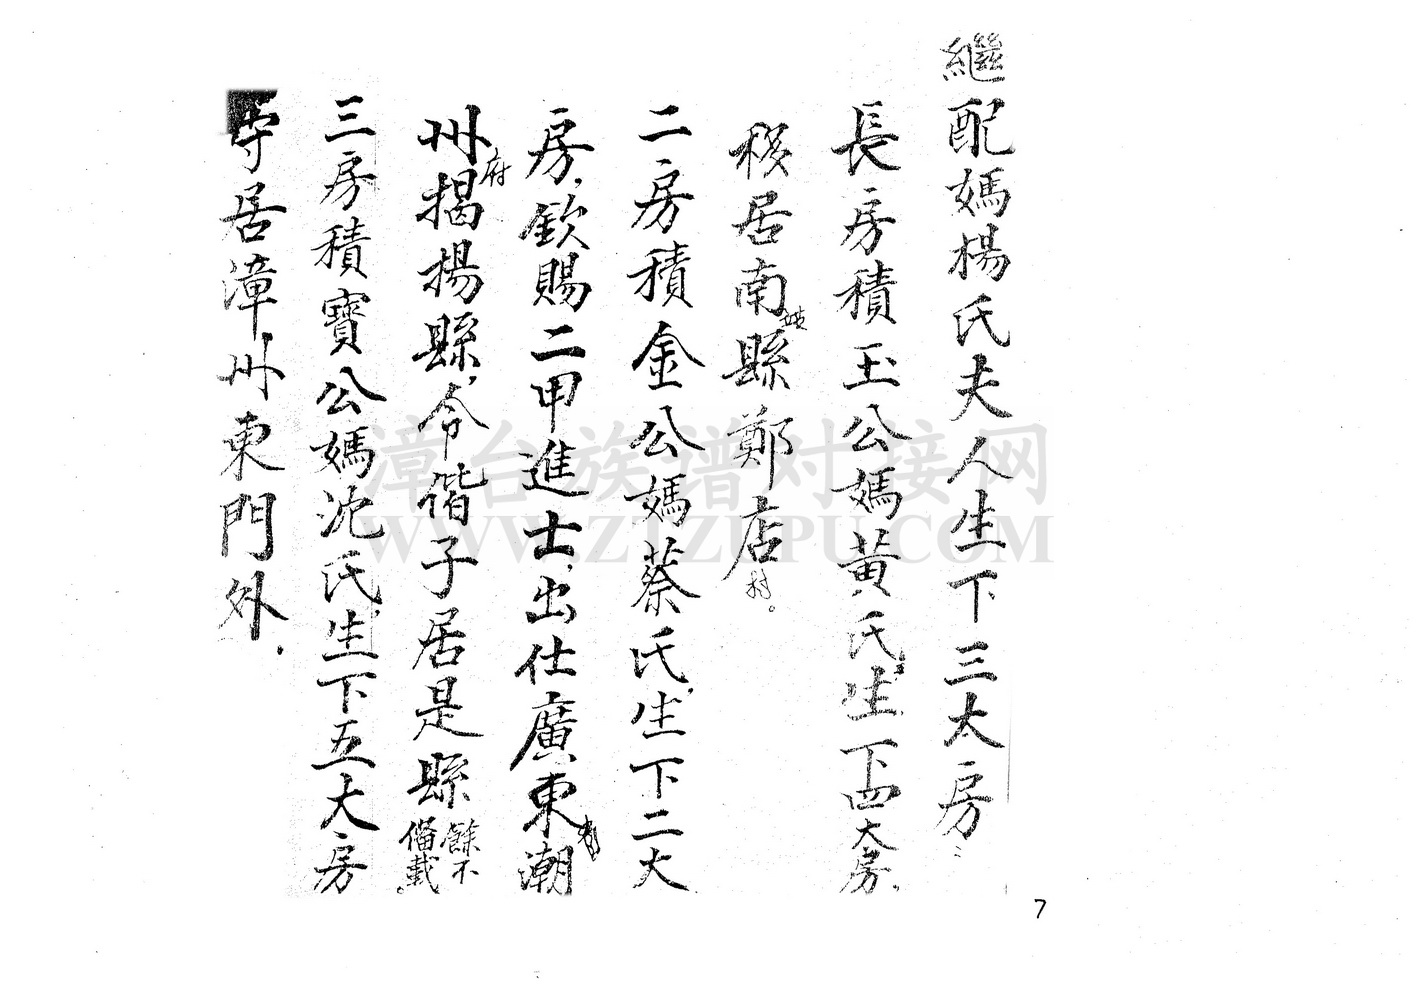 繼配媽楊氏夫人生下三大房
長房積玉公媽黃氏生下四大房
移居南坡縣鄭店村。
二房積金公媽蔡氏生下二大
房,欽賜二甲進士,出仕廣東潮
州府揭揚縣,令偕子居是縣餘不備載。
三房積寶公媽沈氏,生下五大房
守居漳州東門外.
漳台族谱对接网
WWW.ZTZUPU.COM
7